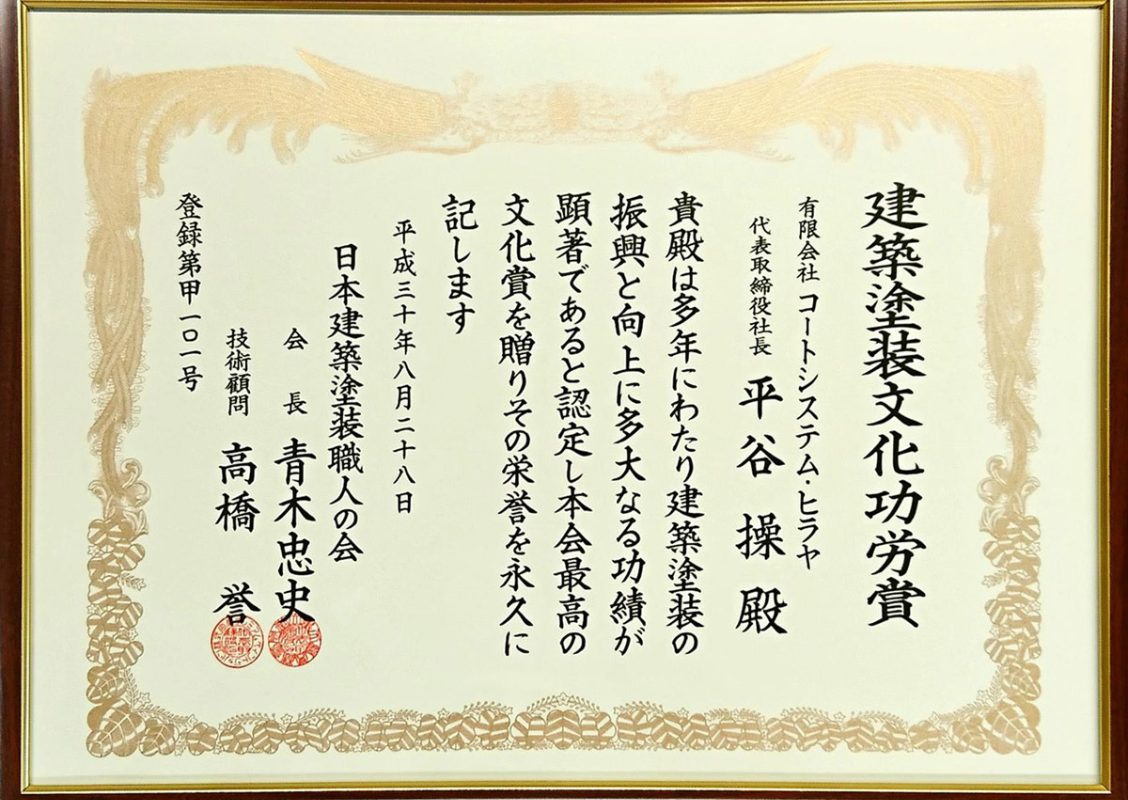 建築塗装文化功労賞
有限会社 コートシステム・ヒラヤ
代表取締役社長 平谷 操 殿
貴殿は多年にわたり建築塗装の
振興と向上に多大なる功績が
顕著であると認定し本会最高の
文化賞を贈りその栄誉を永久に
記します
平成三十年八月二十八日
日本建築塗装職人の会
会長 青木忠史
技術顧問 高橋 誉
登録第甲一〇一号